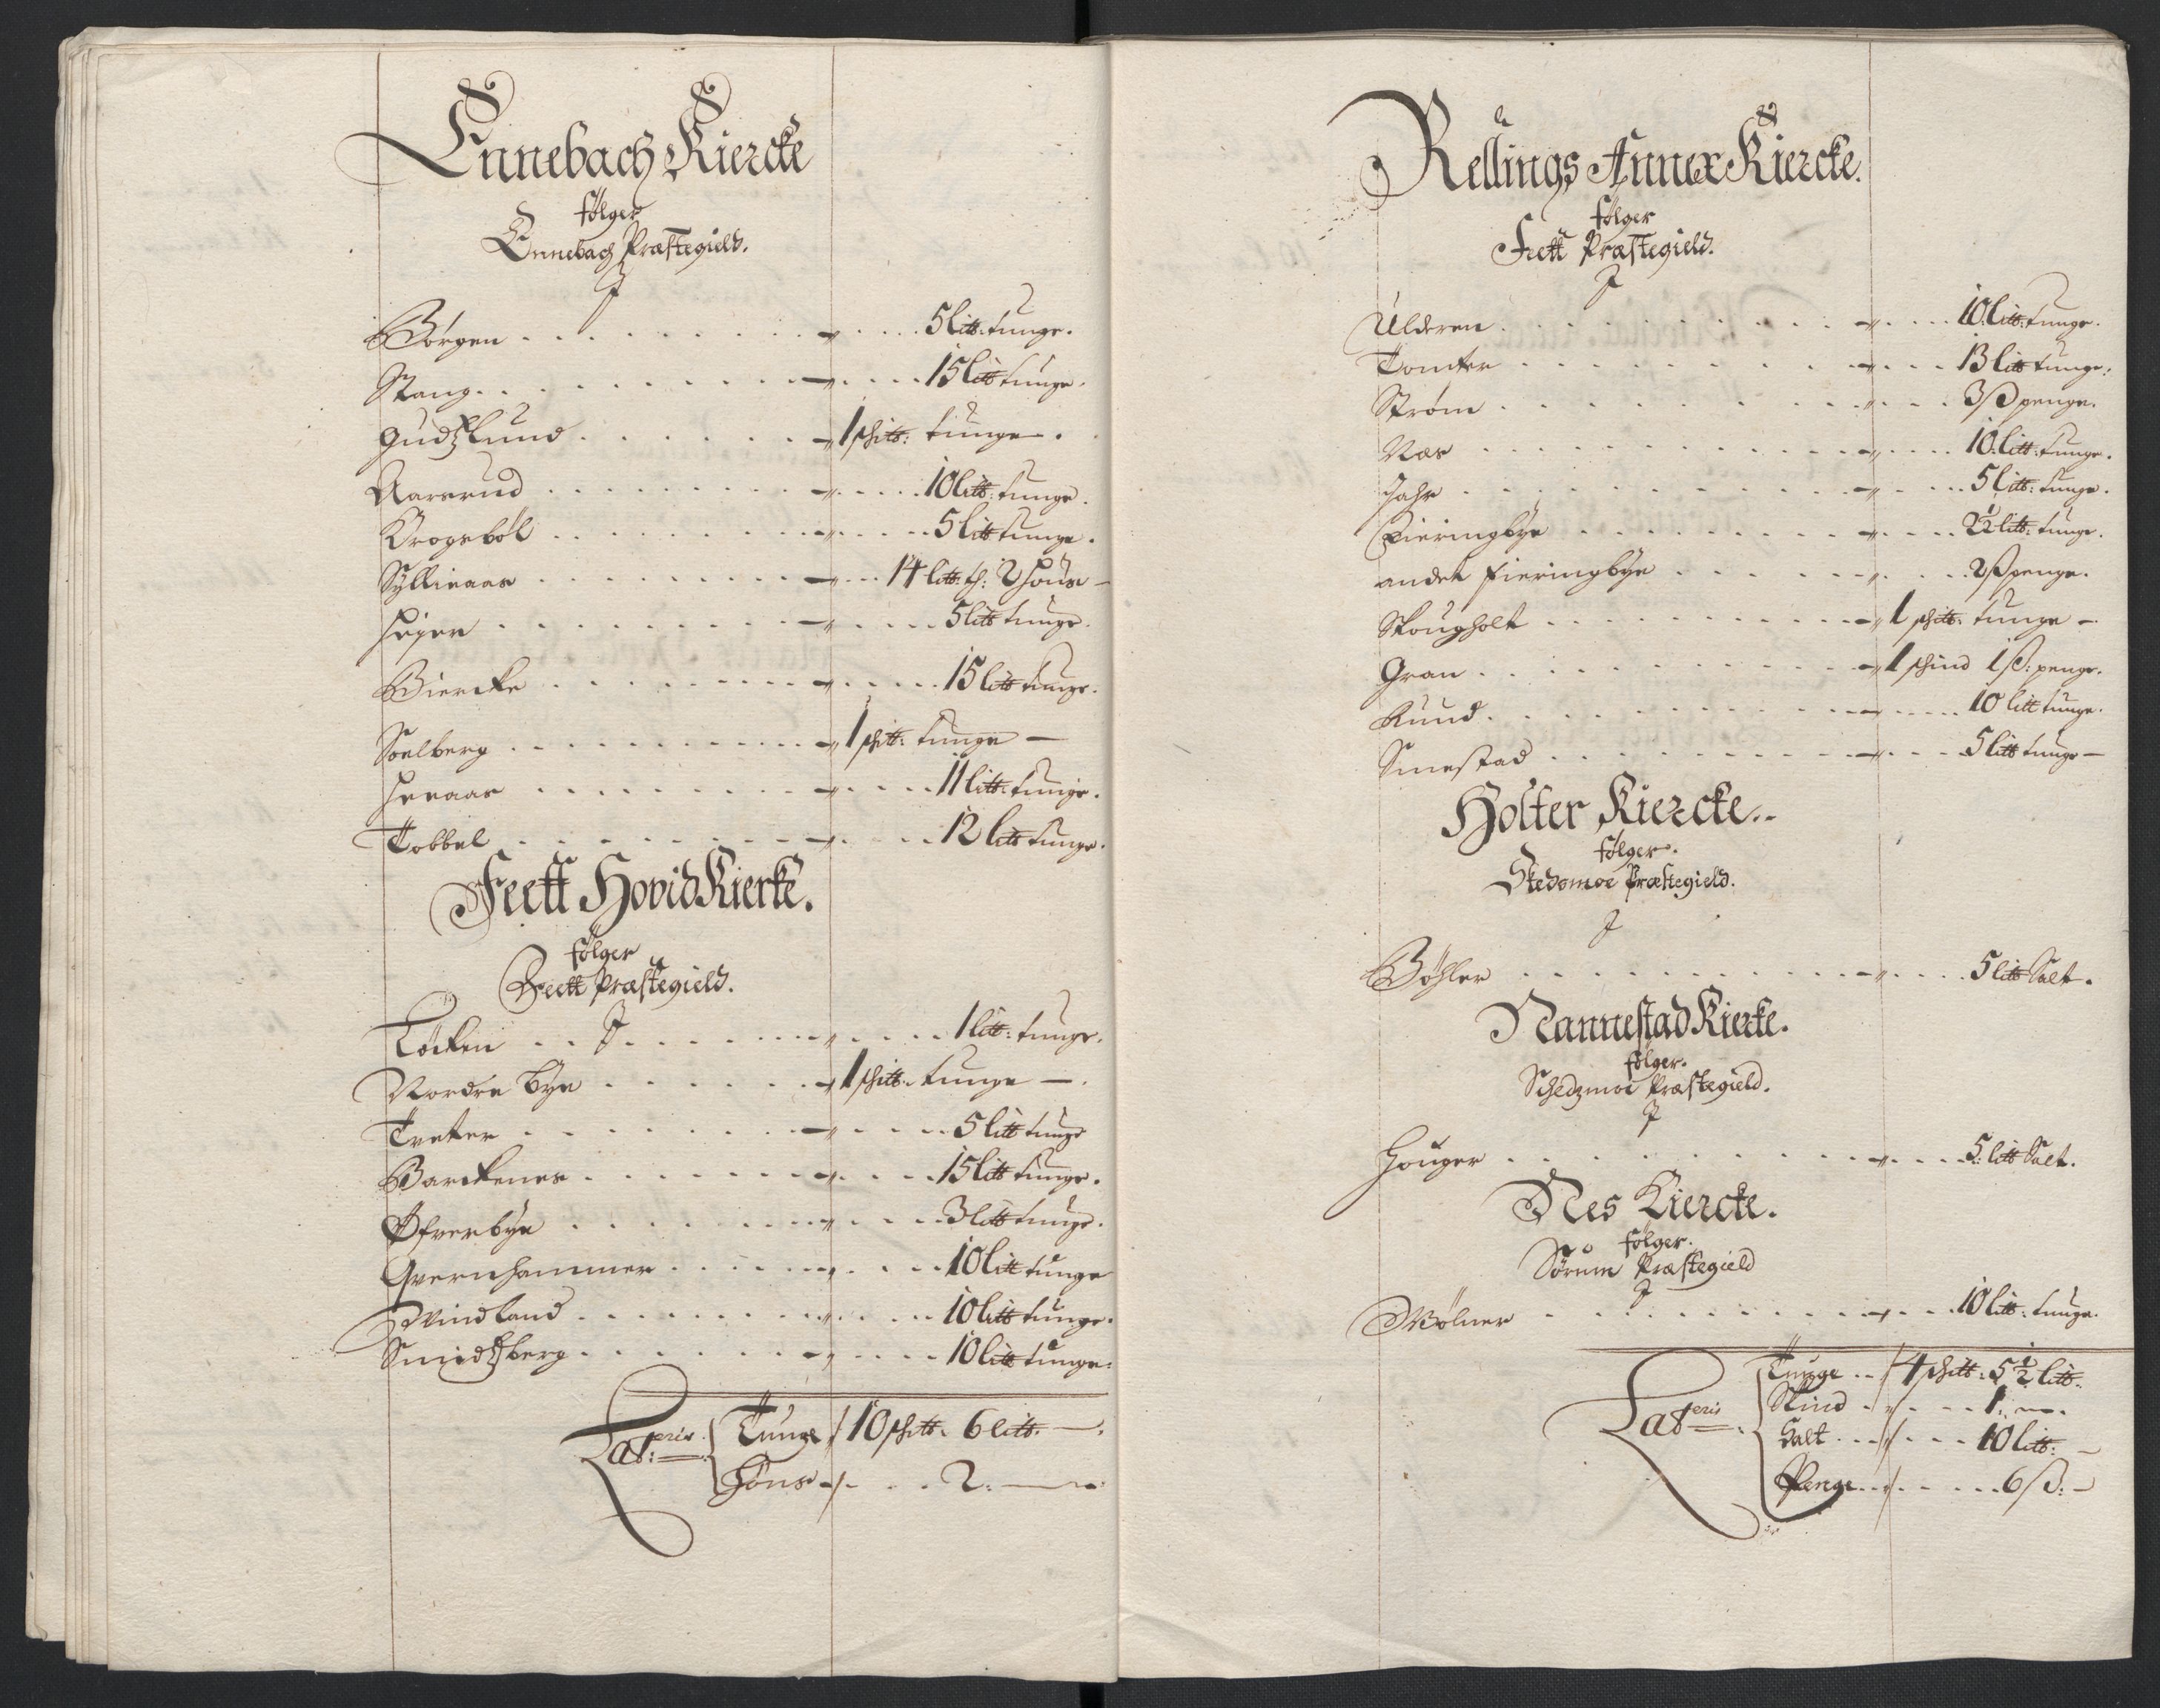 Ennebach Kiercke
følger
Ennebach Præstegield.
J
Børgen - „ - 5 litt: tunge.
Stang - „ - 15 litt tunge.
Gudtzlund - „ 1 schitt: tunge.
Aarerud - „ - 10 litt: tunge.
Krogsböl - „ - 5 litt tunge.
Syllieaas - „ - 14 litt: th: 2 höns -
Heger - „ - 5 litt tunge.
Biercke - „ - 15 litt tunge.
Soelberg - „ 1 schitt: tunge -
Heeaas - „ - 11 litt: tunge.
Tobbel - „ - 12 litt tunge.
Feett Hovid Kierke.
følger
Feett Præstegield.
J
Löcken - „ - 1 litt: tunge.
Nordre bye - „ 1 schitt: tunge -
Tveter - „ - 5 litt tunge
Barckenes - „ - 15 litt tunge.
Øfverbye - „ - 3 litt tunge.
Qvernhammer - „ - 10 litt tunge
Windland - „ - 10 litt tunge.
Smidtzberg - „ - 10 litt tunge.
Lat:eris Tunge / 10 schitt: 6 litt. -
Höns - / - 2. -
Rellings Annex Kiercke.
følger
Feett Præstegield.
J
Ulderen - „ - 10. litt: tunge.
Tomter - „ - 13 litt tunge.
Strøm - „ - 3 ß penge.
Næs - „ - 10. litt: tunge.
Jahr - „ - 5 litt: tunge.
Fieringbye - „ - 2½ litt: tunge.
andet Fieringbye - „ - 2 ß penge.
Skougholt - „ 1 schitt: tunge -
Gran - „ 1 schind 1 ß: penge.
Rund - „ - 10 litt tunge.
Smestad - „ - 5 litt tunge -
Holter Kiercke.
følger.
Skedsmoe Præstegield.
J
Böhler - „ - 5 litt Salt.
Nannestad Kierke.
følger.
Schedzmoe Præstegield.
J
Houger - „ - 5: litt Salt.
Nes Kiercke.
følger.
Sörum Præstegield
J
Wölner - „ - 10 litt: tunge.
Lateris Tunge / 4 schitt: 5½ litt.
Skind - 1.
Salt - 10 litt: -
Penge - 6 ß: -